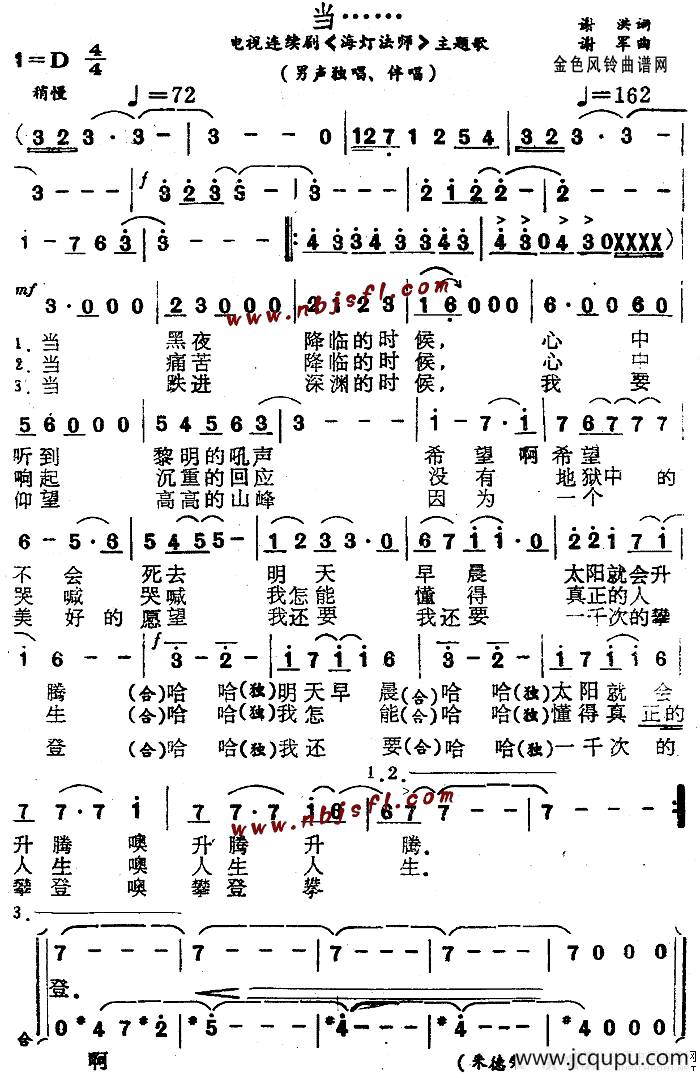 当……
电视连续剧《海灯法师》主题歌
(男声独唱、伴唱)
谢 洪词
谢 军曲
金色风铃曲谱网
1=D 4/4
稍慢 ♩=72 ♩=162
(3 2 3· 3 - | 3 - - 0 | 12 7 1 2 5 4 | 3 2 3· 3 -
3 - - - | f 3 2 3 3 - | 2 1 2 2 - | 2 - - -
1 - 7 6 3 | 3 - - - |: 4 3 3 4 3 3 4 3 | 4 3 0 4 3 0 XXXX)
mf
3· 0 0 0 | 2 3 0 0 0 0 | 2 1 2 3 | 1 6 0 0 0 | 6· 0 0 6 0
www.nbjsfl.com
1.当 黑夜 降临的时 候, 心 中
2.当 痛苦 降临的时 候, 心 中
3.当 跌进 深渊的时 候, 我 要
5 6 0 0 0 | 5 4 5 6 3 | 3 - - - | i - 7· i | 7 6 7 7 7
听到 黎明的吼声 希望啊希望
响起 沉重的回应 没有 地狱中的
仰望 高高的山峰 因为 一个
6 - 5· 6 | 5 4 5 5 - | 1 2 3 3· 0 | 6 7 1 1· 0 | 2 2 1 7 1
不会 死去 明天 早晨 太阳就会升
哭喊 哭喊 我怎能 懂得 真正的人
美好的愿望 我还要 我还要 一千次的攀
i 6 - - | f 3· 2· | i 7 i i | 3· 2· | i 7 i i 6
腾 (合)哈 哈(独)明天早 晨(合)哈 哈(独)太阳就 会
生 (合)哈 哈(独)我怎 能(合)哈 哈(独)懂得真 正的
登 (合)哈 哈(独)我还 要(合)哈 哈(独)一千次 的
1.2.
7 7· 7 i | 7 7· 7 i 6 | 6 7 7 - - | 7 - - - :|
www.nbjsfl.com
升腾 噢 升腾 升 腾.
人生 噢 人生 人 生.
攀登 噢 攀登 攀
3.
7 - - - | 7 - - - | 7 - - - | 7 - - - | 7 0 0 0
登.
合 0 #4 7 #2 | #5 - - - | #4 - - - | #4 - - - | #4 0 0 0
啊
(朱德
www.jcqupu.com